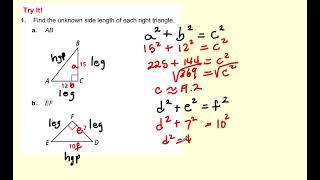 Try It!
1. Find the unknown side length of each right triangle.
a. AB
B
hyp
a 15 leg
A 12 b C
leg
a² + b² = c²
15² + 12² = c²
225 + 144 = c²
√369 = √c²
c ≈ 19.2
b. EF
F
leg e 7 leg
E 10 f D
hyp
d² + e² = f²
d² + 7² = 10²
d² =